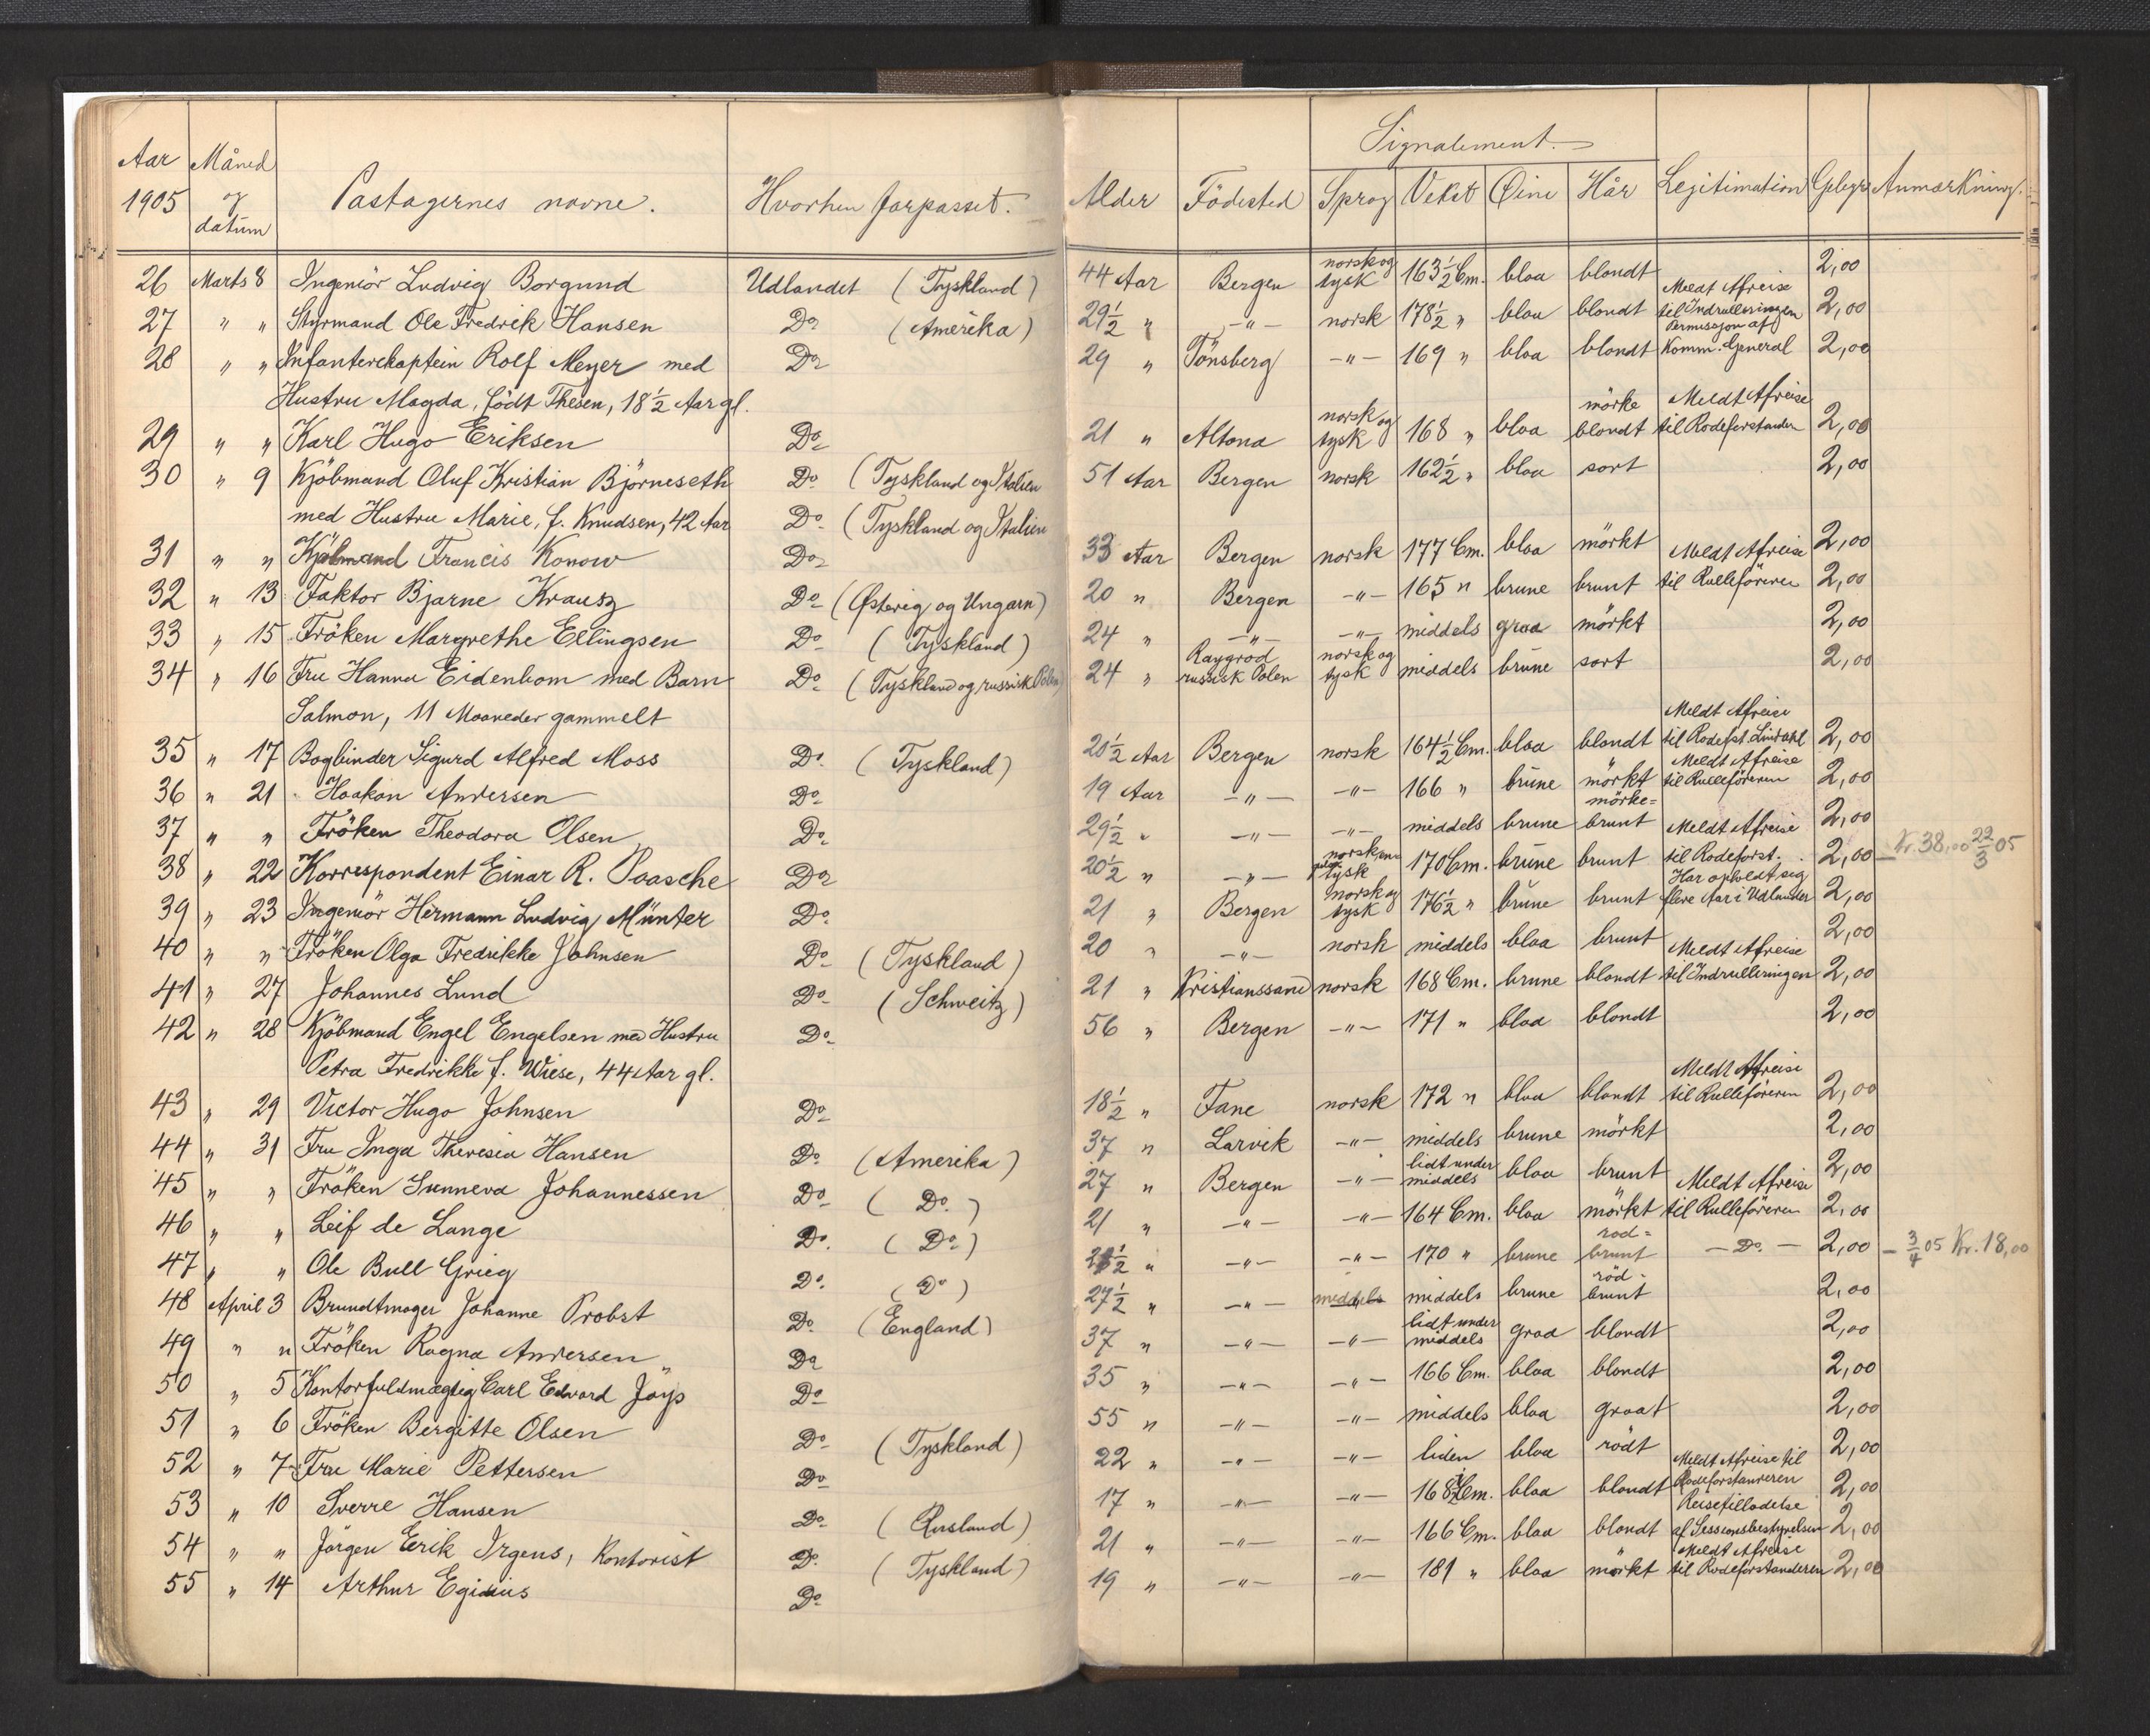 Aar 1905 Måned og datum Passagernes navne. Hvorhen forpasset. Alder Födested Signalement. Sprog Vekst Øine Hår Legitimation Gebyr Anmærkning.
26 Marts 8 Ingeniör Ludvig Borgund Udlandet (Tyskland) 44 Aar Bergen norsk og tysk 163½ Cm. blaa blondt 2,00
27 " " Styrmand Ole Fredrik Hansen Do (Amerika) 29½ " -"- norsk 178½ " blaa blondt Meldt Afreise til Indrulleringen 2,00
28 " " Infanterikaptein Rolf Meyer med Do 29 " Tönsberg -"- 169 " blaa blondt Permission af Komm. General 2,00
Hustru Magda, födt Thesen, 18½ Aar gl.
29 " " Karl Hugo Eriksen Do 21 " Altona norsk og tysk 168 " blaa mörke blondt Meldt Afreise til Rodeforstanden 2,00
30 " 9 Kjöbmand Oluf Kristian Björneseth Do (Tyskland og Italien 51 Aar Bergen norsk 162½ " blaa sort 2,00
med Hustru Marie, f. Knudsen, 42 Aar Do (Tyskland og Italien
31 " " Kjöbmand Francis Konow Do 33 Aar Bergen norsk 177 Cm. blaa mörkt 2,00
32 " 13 Faktor Bjarne Krausz Do (Østerig og Ungarn) 20 " Bergen -"- 165 " brune brunt Meldt Afreise til Rulleföreren 2,00
33 " 15 Fröken Margrethe Ellingsen Do (Tyskland) 24 " -"- -"- middels graa mörkt 2,00
34 " 16 Fru Hanna Eidenbom med Barn Do (Tyskland og russisk Polen) 24 " Raygrod russisk Polen norsk og tysk middels brune sort 2,00
Salmon, 11 Maaneder gammelt
35 " 17 Bogbinder Sigurd Alfred Moss Do (Tyskland) 20½ Aar Bergen norsk 164½ Cm. blaa blondt Meldt Afreise til Rodefst. Lindahl 2,00
36 " 21 Haakon Andersen Do 19 Aar -"- -"- 166 " brune mörkt Meldt Afreise til Rulleföreren 2,00
37 " " Fröken Theodora Olsen Do 29½ " -"- -"- middels brune mörke= brunt 2,00
38 " 22 Korrespondent Einar R. Paasche Do 20½ " -"- norsk, eng. tysk 170 Cm. brune brunt Meldt Afreise til Rodeforst. 2,00 – Kr. 38,00 22/3 05
39 " 23 Ingeniör Hermann Ludvig Münter Do 21 " Bergen norsk og tysk 176½ " brune brunt Har opholdt sig flere Aar i Udlandet 2,00
40 " " Fröken Olga Fredrikke Johnsen Do (Tyskland) 20 " -"- norsk middels blaa brunt 2,00
41 " 27 Johannes Lund Do (Schweitz) 21 " Kristianssand norsk 168 Cm. brune blondt Meldt Afreise til Indrulleringen 2,00
42 " 28 Kjöbmand Engel Engelsen med Hustru Do 56 " Bergen -"- 171 " blaa blondt 2,00
Petra Fredrikke f. Wiese, 44 Aar gl.
43 " 29 Victor Hugo Johnsen Do 18½ " Fane norsk 172 " blaa blondt Meldt Afreise til Rulleföreren 2,00
44 " 31 Fru Inga Theresia Hansen Do (Amerika) 37 " Larvik -"- middels brune mörkt 2,00
45 " " Fröken Sunneva Johannessen Do (Do.) 27 " Bergen -"- lidt under middels blaa brunt 2,00
46 " " Leif de Lange Do. (Do.) 21 " -"- -"- 164 Cm. blaa mörkt Meldt Afreise til Rulleföreren 2,00
47 " " Ole Bull Grieg Do. (Do) ½ " -"- -"- 170 " brune rod= brunt -Do.- 2,00 – 3/4 05 Kr. 18,00
48 April 3 Brundtmager Johanne Probst Do. (England) 27½ " -"- middels middels brune röd- brunt 2,00
49 " " Fröken Ragna Andersen Do 37 " -"- -"- lidt under middels graa blondt 2,00
50 " 5 Kontorfuldmægtig Carl Edvard Jöys Do 35 " -"- -"- 166 Cm. blaa blondt 2,00
51 " 6 Fröken Bergitte Olsen Do (Tyskland) 55 " -"- -"- middels blaa graat 2,00
52 " 7 Fru Marie Pettersen Do 22 " -"- -"- liden blaa rödt 2,00
53 " 10 Sverre Hansen Do (Rusland) 17 " -"- -"- 168½ Cm. blaa blondt Meldt Afreise til Rodeforstanderen 2,00
54 " " Jörgen Erik Irgens, Kontorist Do (Tyskland) 21 " -"- -"- 166 Cm. blaa blondt Reisetilladelse af Sessionsbestyrelsen 2,00
55 " 14 Arthur Egidius Do 19 " -"- -"- 181 " blaa mörkt Meldt Afreise til Rodeforstanderen 2,00